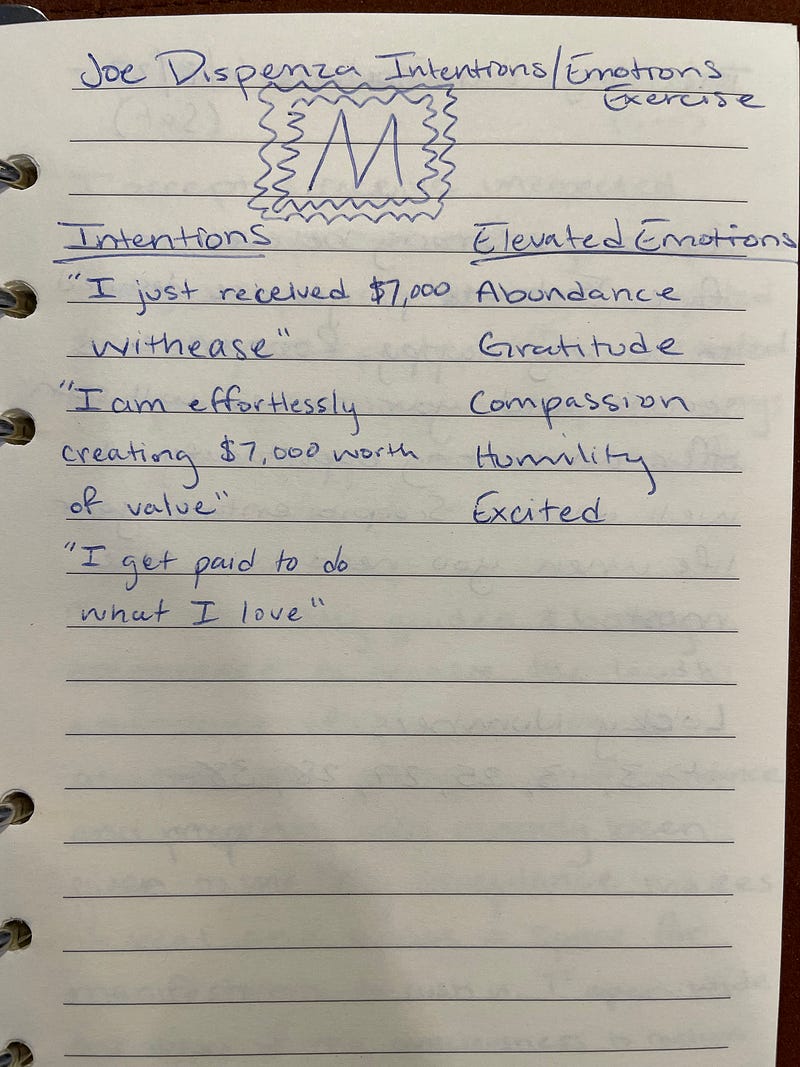 Joe Dispenza Intentions/Emotions
Exercise
M
Intentions
Elevated Emotions
"I just received $7,000
Abundance
withease"
Gratitude
"I am effortlessly
Compassion
creating $7,000 worth
Humility
of value"
Excited
"I get paid to do
what I love"